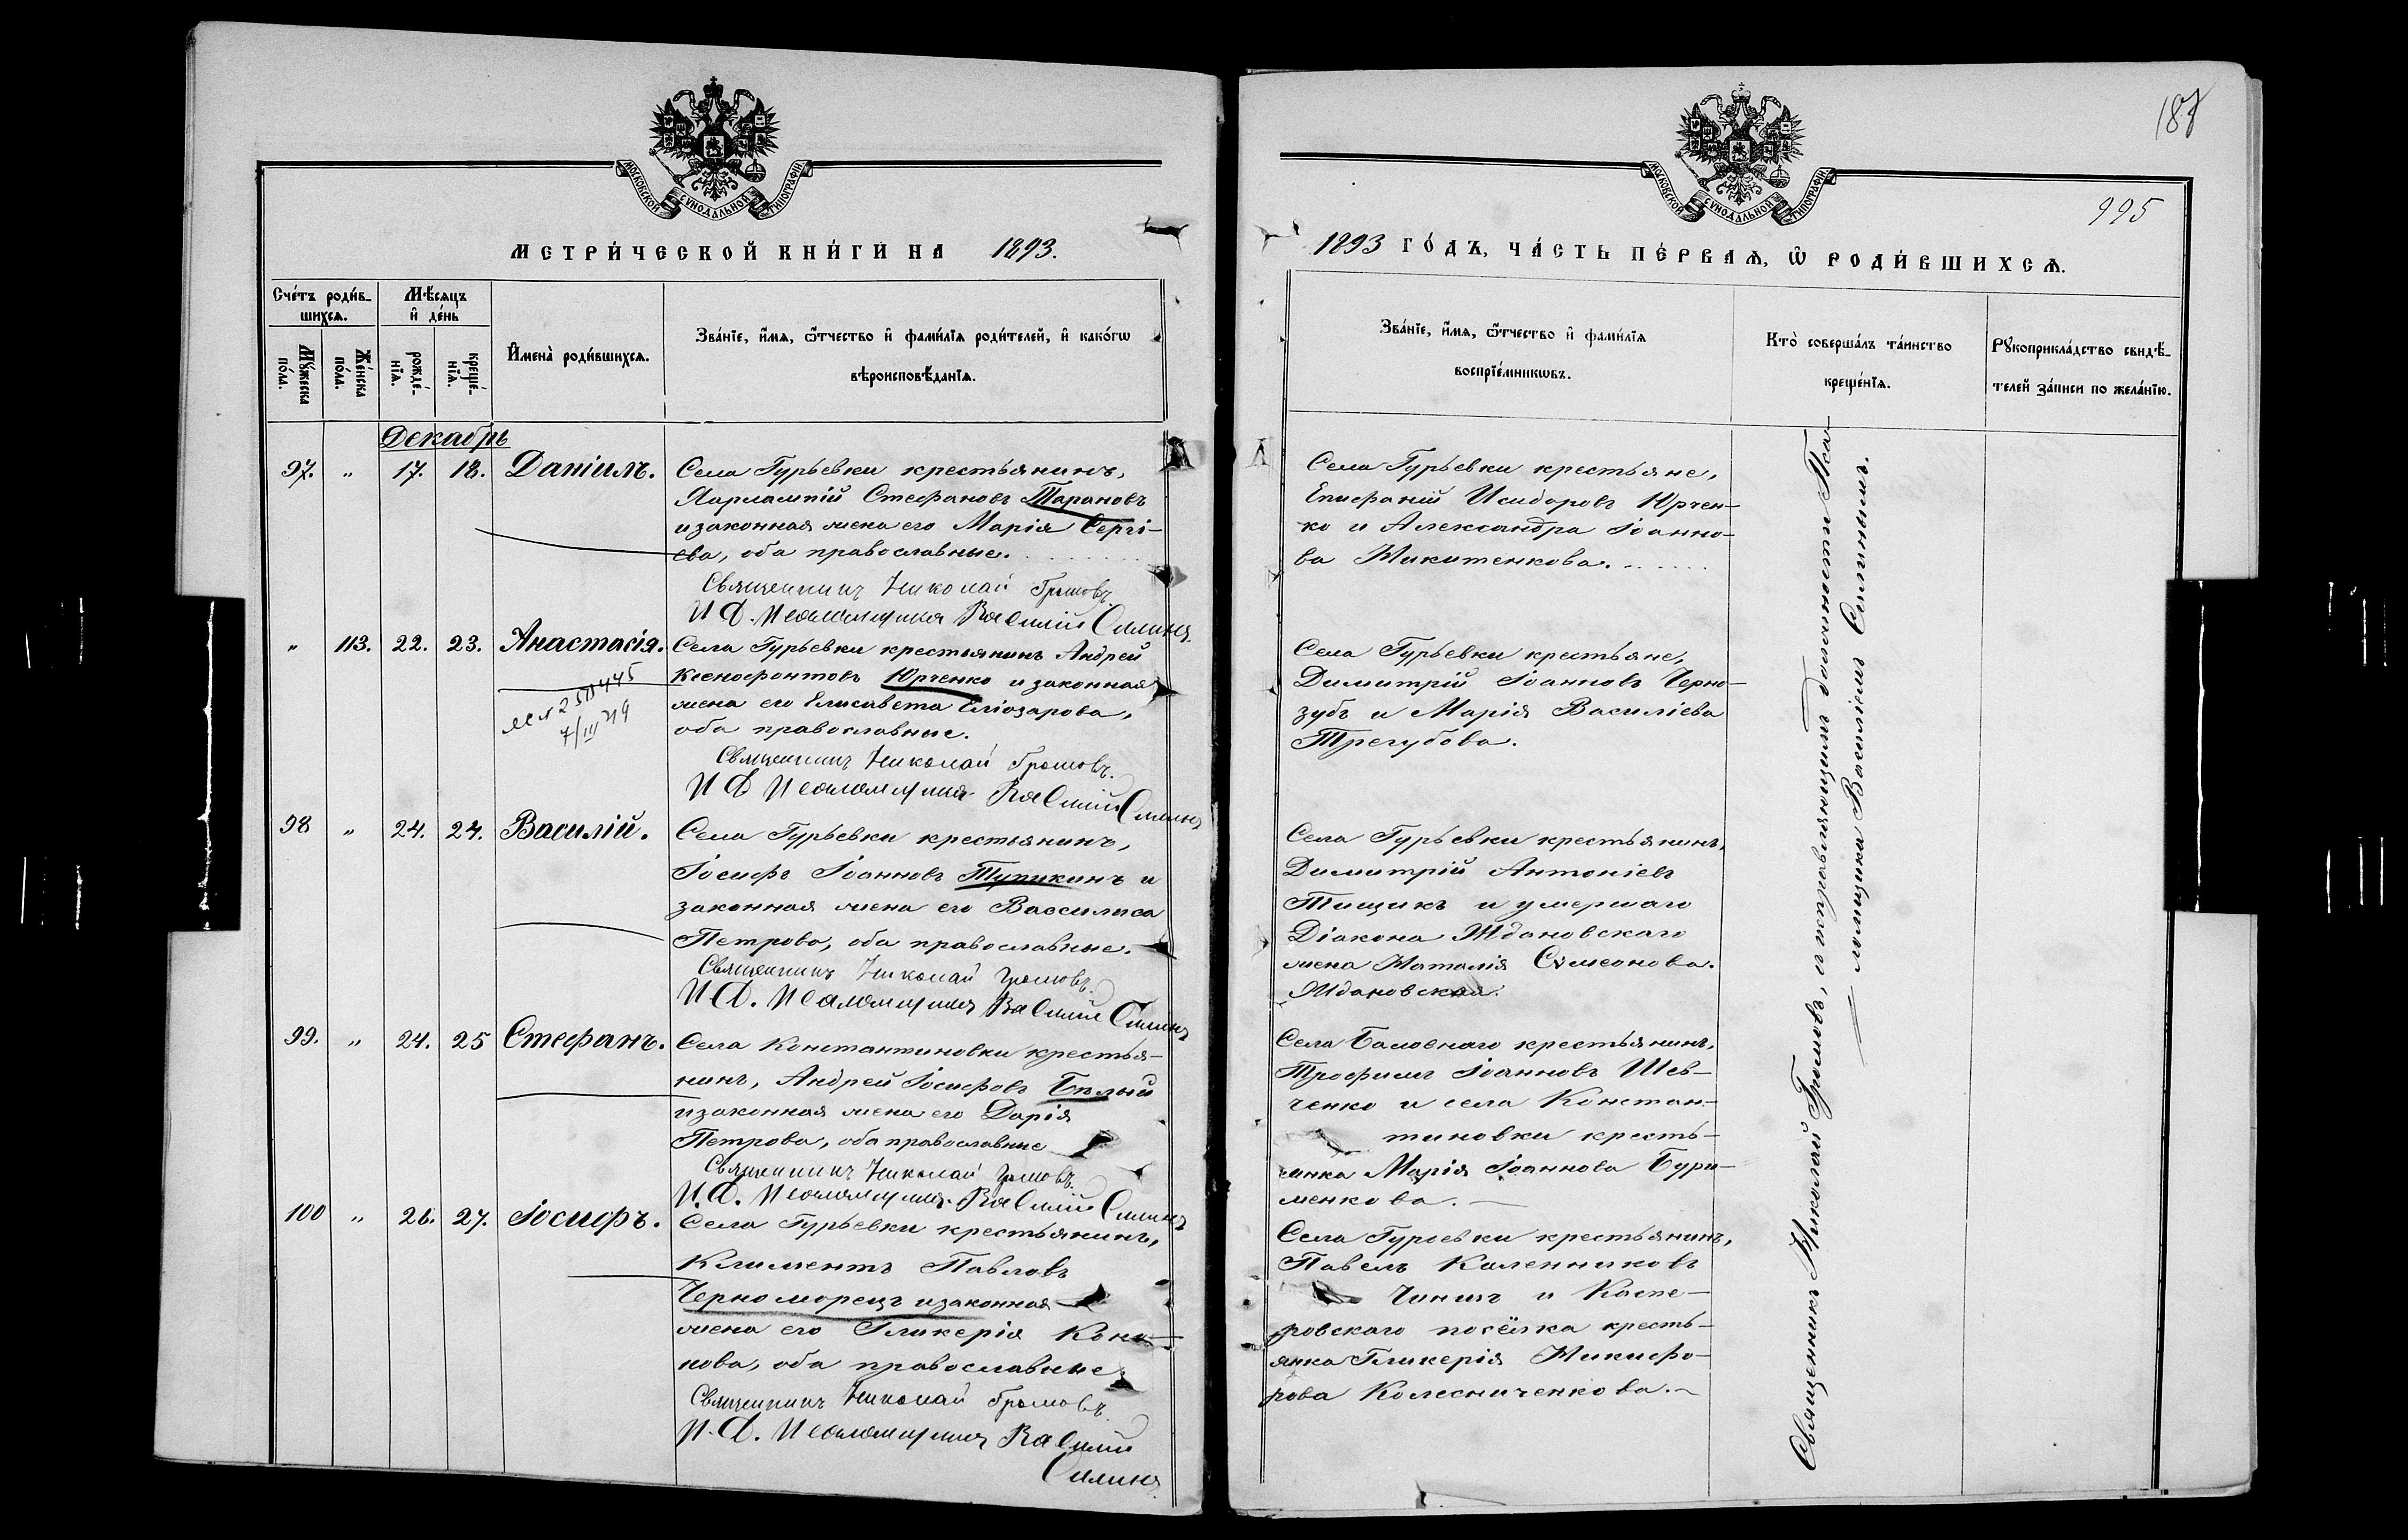 МОСКОВСКОЙ СѴНОДАЛЬНОЙ ТИПОГРАФІИ
МЕТРИ́ЧЕСКОЙ КНИ́ГИ НА 1893.
Сче́тъ роди́в-
шихсѧ.
Мѣ́сѧцъ
и҆ де́нь
Мꙋ́жеска
по́ла.
Же́нска
по́ла.
рожде́-
нїѧ.
креще́-
нїѧ.
И҆мена̀ роди́вшихсѧ.
Зва́нїе, и҆́мѧ, ѻ҆́тчество и҆ фами́лїѧ роди́телей, и҆ како́гѡ
вѣроисповѣ́данїѧ.
Декабрь
97. " 17. 18. Даніилъ. Села Гурьевки крестьянинъ,
Харлампій Стефановъ Тарановъ
и законная жена его Марія Сергі-
ева, оба православные.
Священникъ Николай Громовъ.
И. Д. Псаломщика Василій Силинъ
" 113. 22. 23. Анастасія. Села Гурьевки крестьянинъ Андрей
Ксенофонтовъ Юрченко и законная
жена его Елисавета Еліозарова,
оба православные.
7/III
Священникъ Николай Громовъ.
И Д Псаломщика Василій Силинъ
98 " 24. 24. Василій. Села Гурьевки крестьянинъ,
Іосифъ Іоанновъ Тупикинъ и
законная жена его Василиса
Петрова, оба православные.
Священникъ Николай Громовъ.
И. Д. Псаломщика Василій Силинъ
99. " 24. 25 Стефанъ. Села Константиновки крестья-
нинъ, Андрей Іосифовъ Бѣлый
и законная жена его Дарія
Петрова, оба православные
Священникъ Николай Громовъ.
И. Д. Псаломщика Василій Силинъ
100 " 26. 27. Іосифъ. Села Гурьевки крестьянинъ,
Климентъ Павловъ
Черноморецъ и законная
жена его Гликерія Коно-
нова, оба православные
Священникъ Николай Громовъ.
И. Д. Псаломщика Василій
Силинъ
187
995
МОСКОВСКОЙ СѴНОДАЛЬНОЙ ТИПОГРАФІИ
1893 ГО́ДЪ, ЧА́СТЬ ПЕ́РВАѦ, Ѽ РОДИ́ВШИХСѦ.
Зва́нїе, и҆́мѧ, ѻ҆́тчество и҆ фами́лїѧ
воспрїе́мникѡвъ.
Кто̀ соверша́лъ та́инство
креще́нїѧ.
Рꙋкоприкла́дство свидѣ́-
телей за́писи по жела́нїю.
Села Гурьевки крестьяне,
Епифаній Исидоровъ Юрчен-
ко и Александра Іоанно-
ва Никитенкова.
Села Гурьевки крестьяне,
Димитрій Іоанновъ Черно-
зубъ и Марія Василіева
Трегубова.
Села Гурьевки крестьянинъ,
Димитрій Антоніевъ
Тищикъ и умершаго
Діакона Ждановскаго
жена Наталія Сѵмеонова.
Ждановская.
Села Баловнаго крестьянинъ,
Трофимъ Іоанновъ Шев-
ченко и села Констан-
тиновки кресть-
янка Марія Іоаннова Бури-
менкова.
Села Гурьевки крестьянинъ,
Павелъ Каленниковъ
Чиничъ и Каспе-
ровскаго посёлка кресть-
янка Гликерія Никифо-
рова Колесниченкова.
Священникъ Николай Громовъ, и исправляющимъ должность Пса-
ломщика Василіемъ Силинымъ.